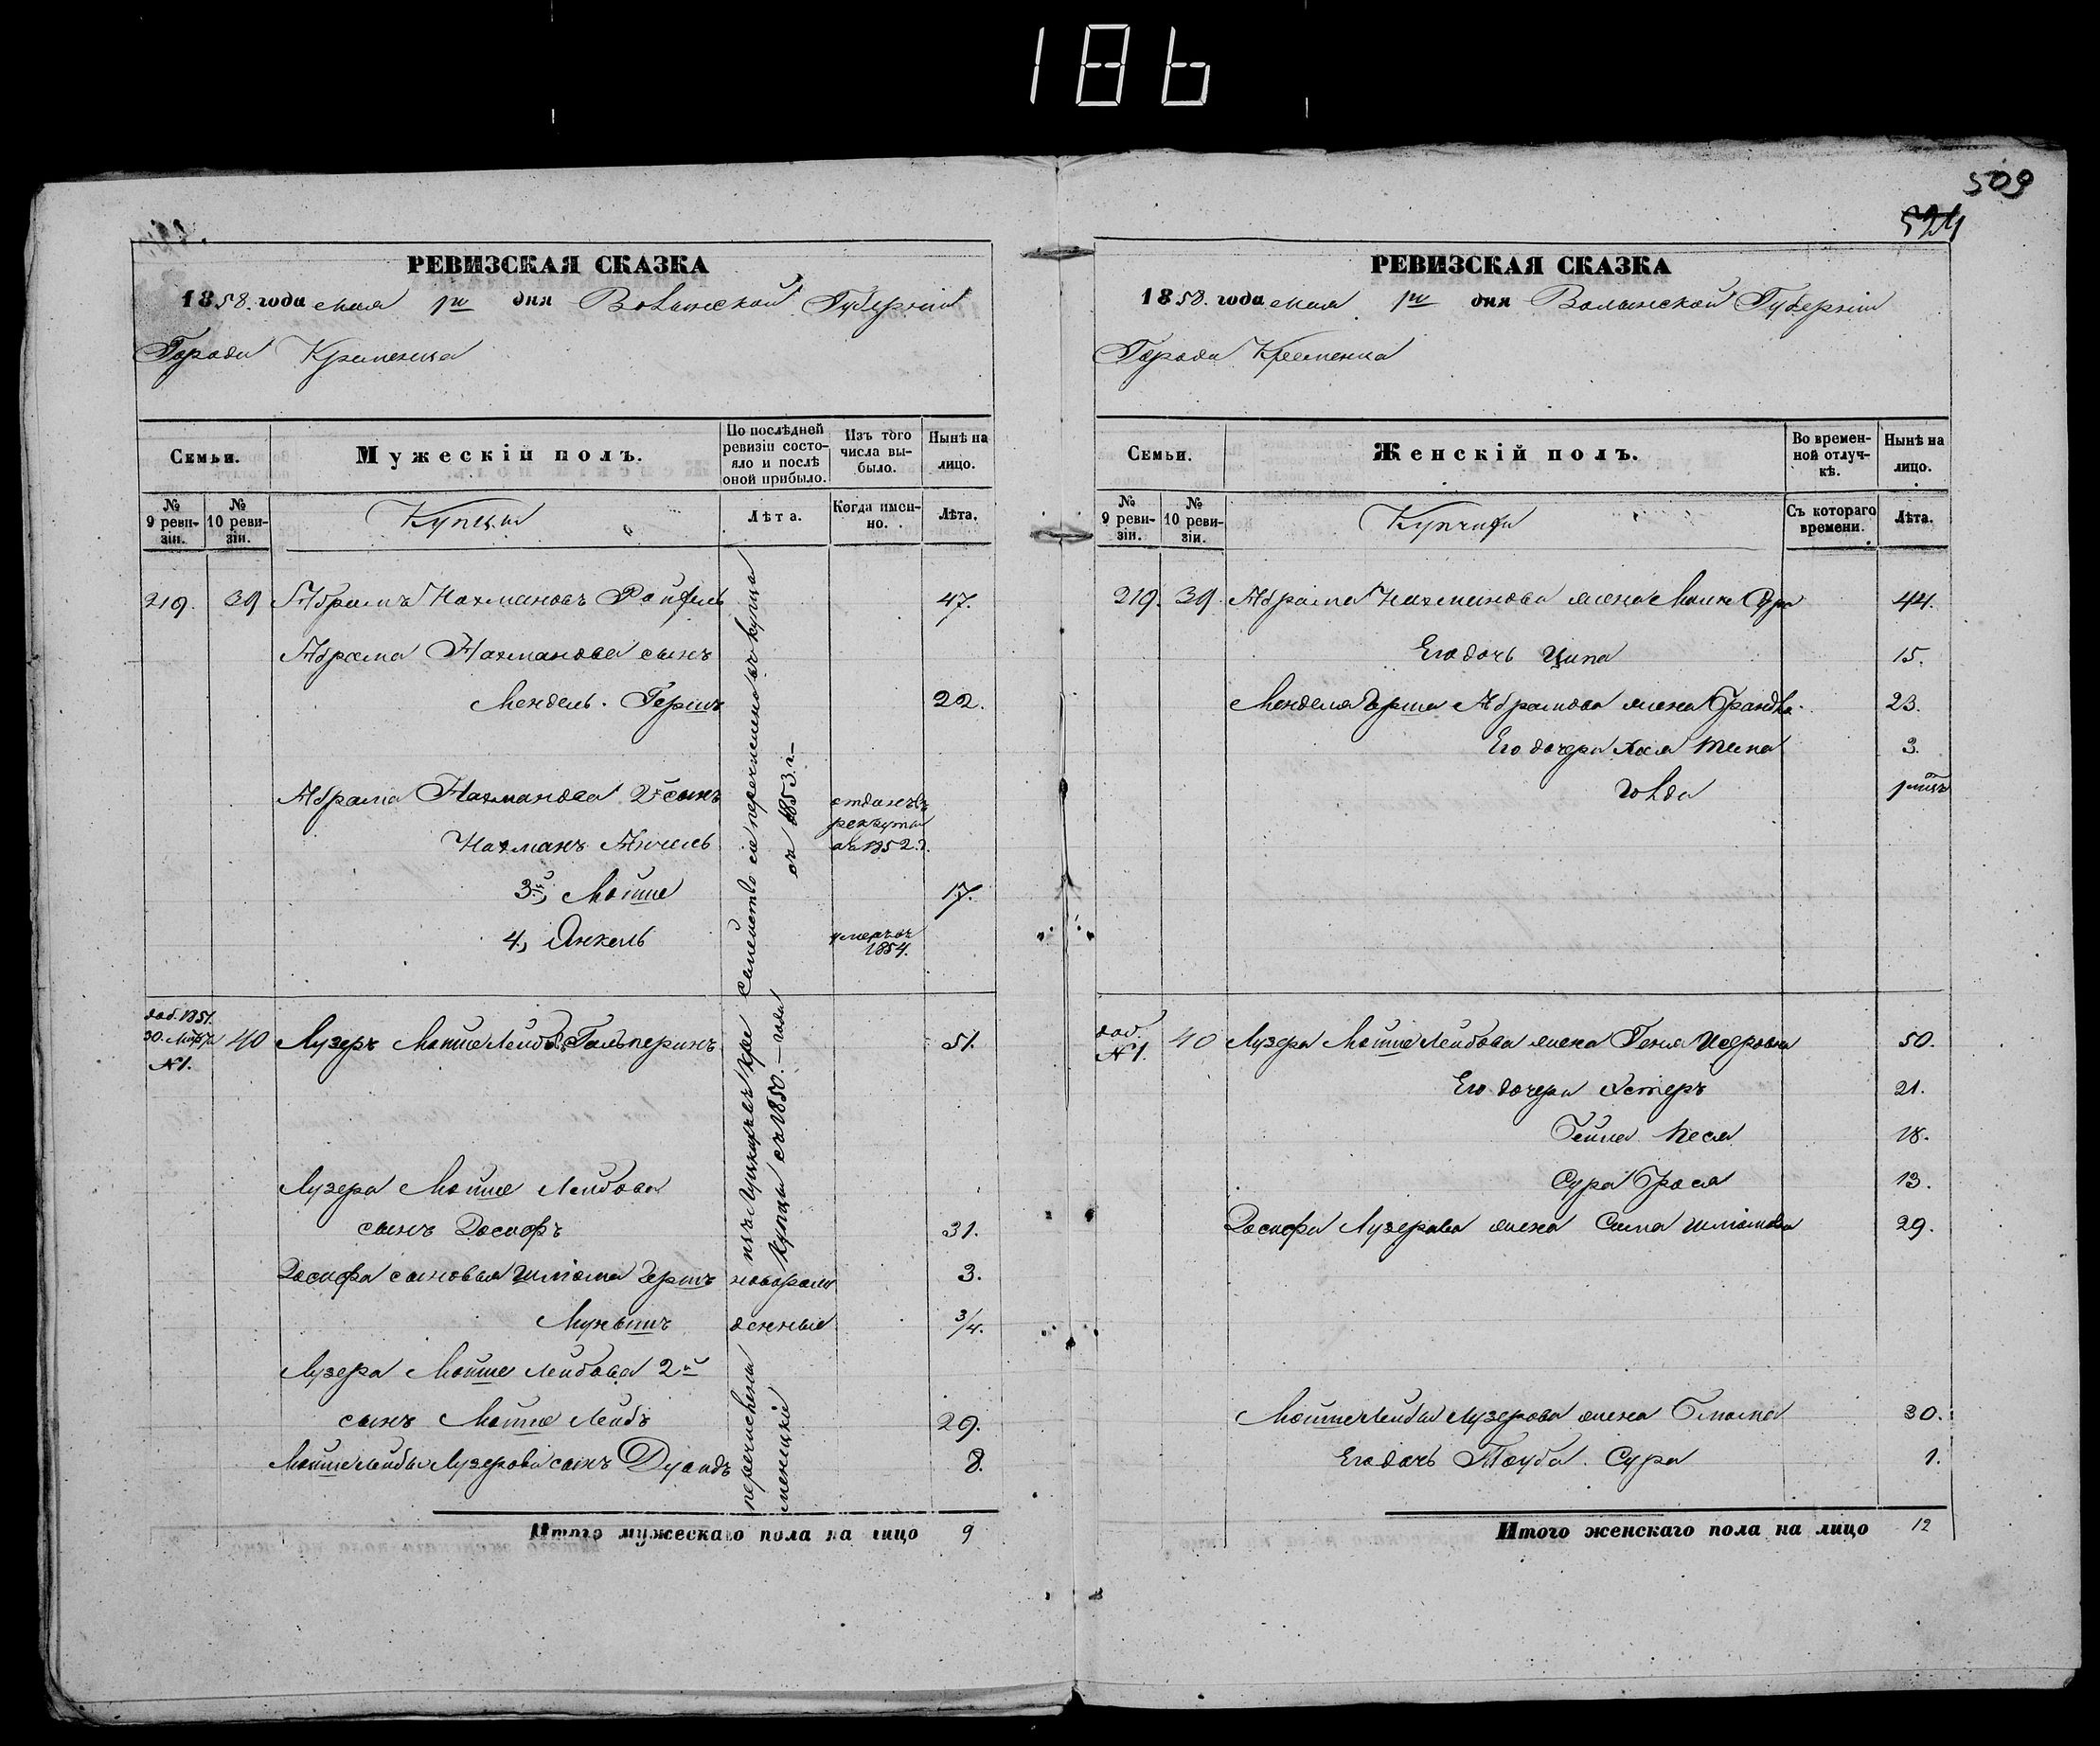 186
509
524
РЕВИЗСКАЯ СКАЗКА
1858. года мая 1го дня Волынской Губерніи
Города Кременца
Семьи.
Мужескій полъ.
По послѣдней ревизіи состояло и послѣ оной прибыло.
Изъ того числа выбыло.
Нынѣ на лицо.
№ 9 ревизіи.
№ 10 ревизіи.
Купцы
Лѣта.
Когда именно.
Лѣта.
219. 39 Абрамъ Нахмановъ 47.
Абрама Нахманова сынъ
Мендель Гершъ 22.
Абрама Нахманова 2й сынъ отданъ въ
Нахманъ рекруты въ 1852 г.
3й, Мойше 17.
4, Янкель умеръ въ 1854.
семейство сіе перечислено въ купцы
съ 1853 г.
доб. 1851.
30. Марта
№1.
40 Лузеръ Мошше Лейбовъ Гальперинъ 51.
Лузера Мошше Лейбова
сынъ Іосифъ 31.
Іосифа сыновья Шлiома Гершъ новорож 3.
денные 3/4.
Лузера Мошше Лейбова 2й
сынъ Мошше Лейбъ 29.
Мошше Лейбы Лузерова сынъ Дувидъ 8.
изъ Луцкихъ
купцы съ 1850. года
перечислены
Итого мужескаго пола на лицо 9
РЕВИЗСКАЯ СКАЗКА
1858. года мая 1го дня Волынской Губерніи
Города Кременца
Семьи.
Женскій полъ.
Во временной отлучкѣ.
Нынѣ на лицо.
№ 9 ревизіи.
№ 10 ревизіи.
Съ котораго времени.
Лѣта.
219. 39. Абрама Нахманова жена 44.
Его дочь Ципа 15.
Менделя Герша Абрамова жена 23.
Его дочери Хая 3.
доб.
№1.
40 Лузера Мошше Лейбова жена Геня 50.
Его дочери Эстеръ 21.
Песя 18.
Сура 13.
Іосифа Лузерова жена Шлiомова 29.
Мошше Лейбы Лузерова жена 30.
Его дочь Тауба Сура 1.
Итого женскаго пола на лицо 12